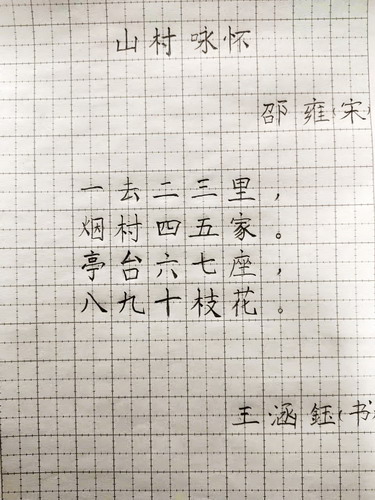 山村咏怀
邵雍(宋
一去二三里，
烟村四五家。
亭台六七座，
八九十枝花。
王涵鈺(书